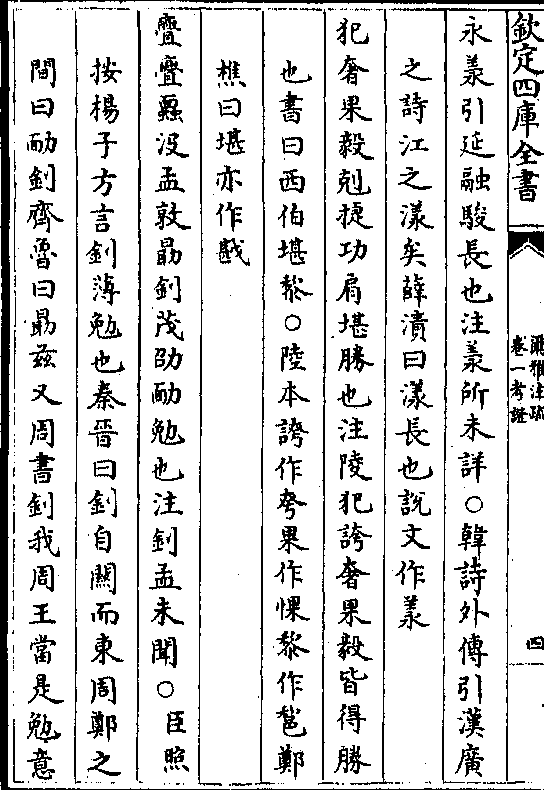 欽定四庫全書
爾雅注疏
卷一考證
四
永羕引延融駿長也注羕所未詳○韓詩外傳引漢廣
之詩江之漾矣薛漬曰漾長也説文作羕
犯奢果毅剋捷功肩堪勝也注陵犯誇奢果毅皆得勝
也書曰西伯堪黎○陸本誇作夸果作惈黎作𨛫鄭
樵曰堪亦作戡
亹亹蠠没孟敦勗釗茂劭勔勉也注釗孟未聞○臣照
按楊子方言釗薄勉也秦晉曰釗自關而東周鄭之
間曰勔釗齊魯曰勗兹又周書釗我周王當是勉意